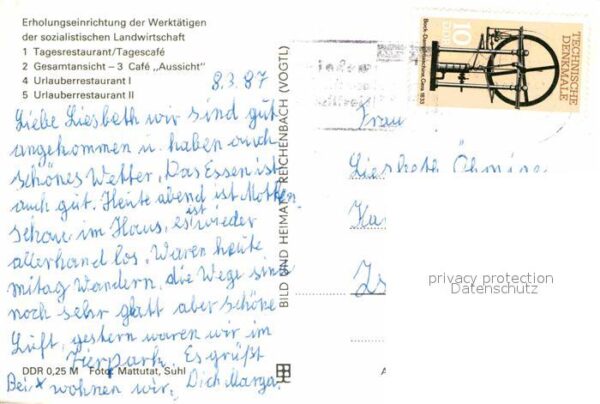 Erholungseinrichtung der Werktätigen
der sozialistischen Landwirtschaft
1 Tagesrestaurant/Tagescafé
2 Gesamtansicht – 3 Café „Aussicht"
4 Urlauberrestaurant I
5 Urlauberrestaurant II
8.3.87
Liebe Liesbeth wir sind gut
angekommen u. haben auch
schönes Wetter. Das Essen ist
auch gut. Heute abend ist Moden
schau im Haus, es ist wieder
allerhand los. Waren heute
mitag Wandern, die Wege sind
noch sehr glatt aber schöne
Luft, gestern waren wir im
Tierpark. Es grüßt
Bei x wohnen wir. Dich Marga.
DDR 0,25 M Foto: Mattutat, Suhl
BILD UND HEIMAT REICHENBACH (VOGTL)
TECHNISCHE
DENKMALE
10
DDR
Bock-Dampfmaschine, Gera 1833
Frau
privacy protection
Datenschutz